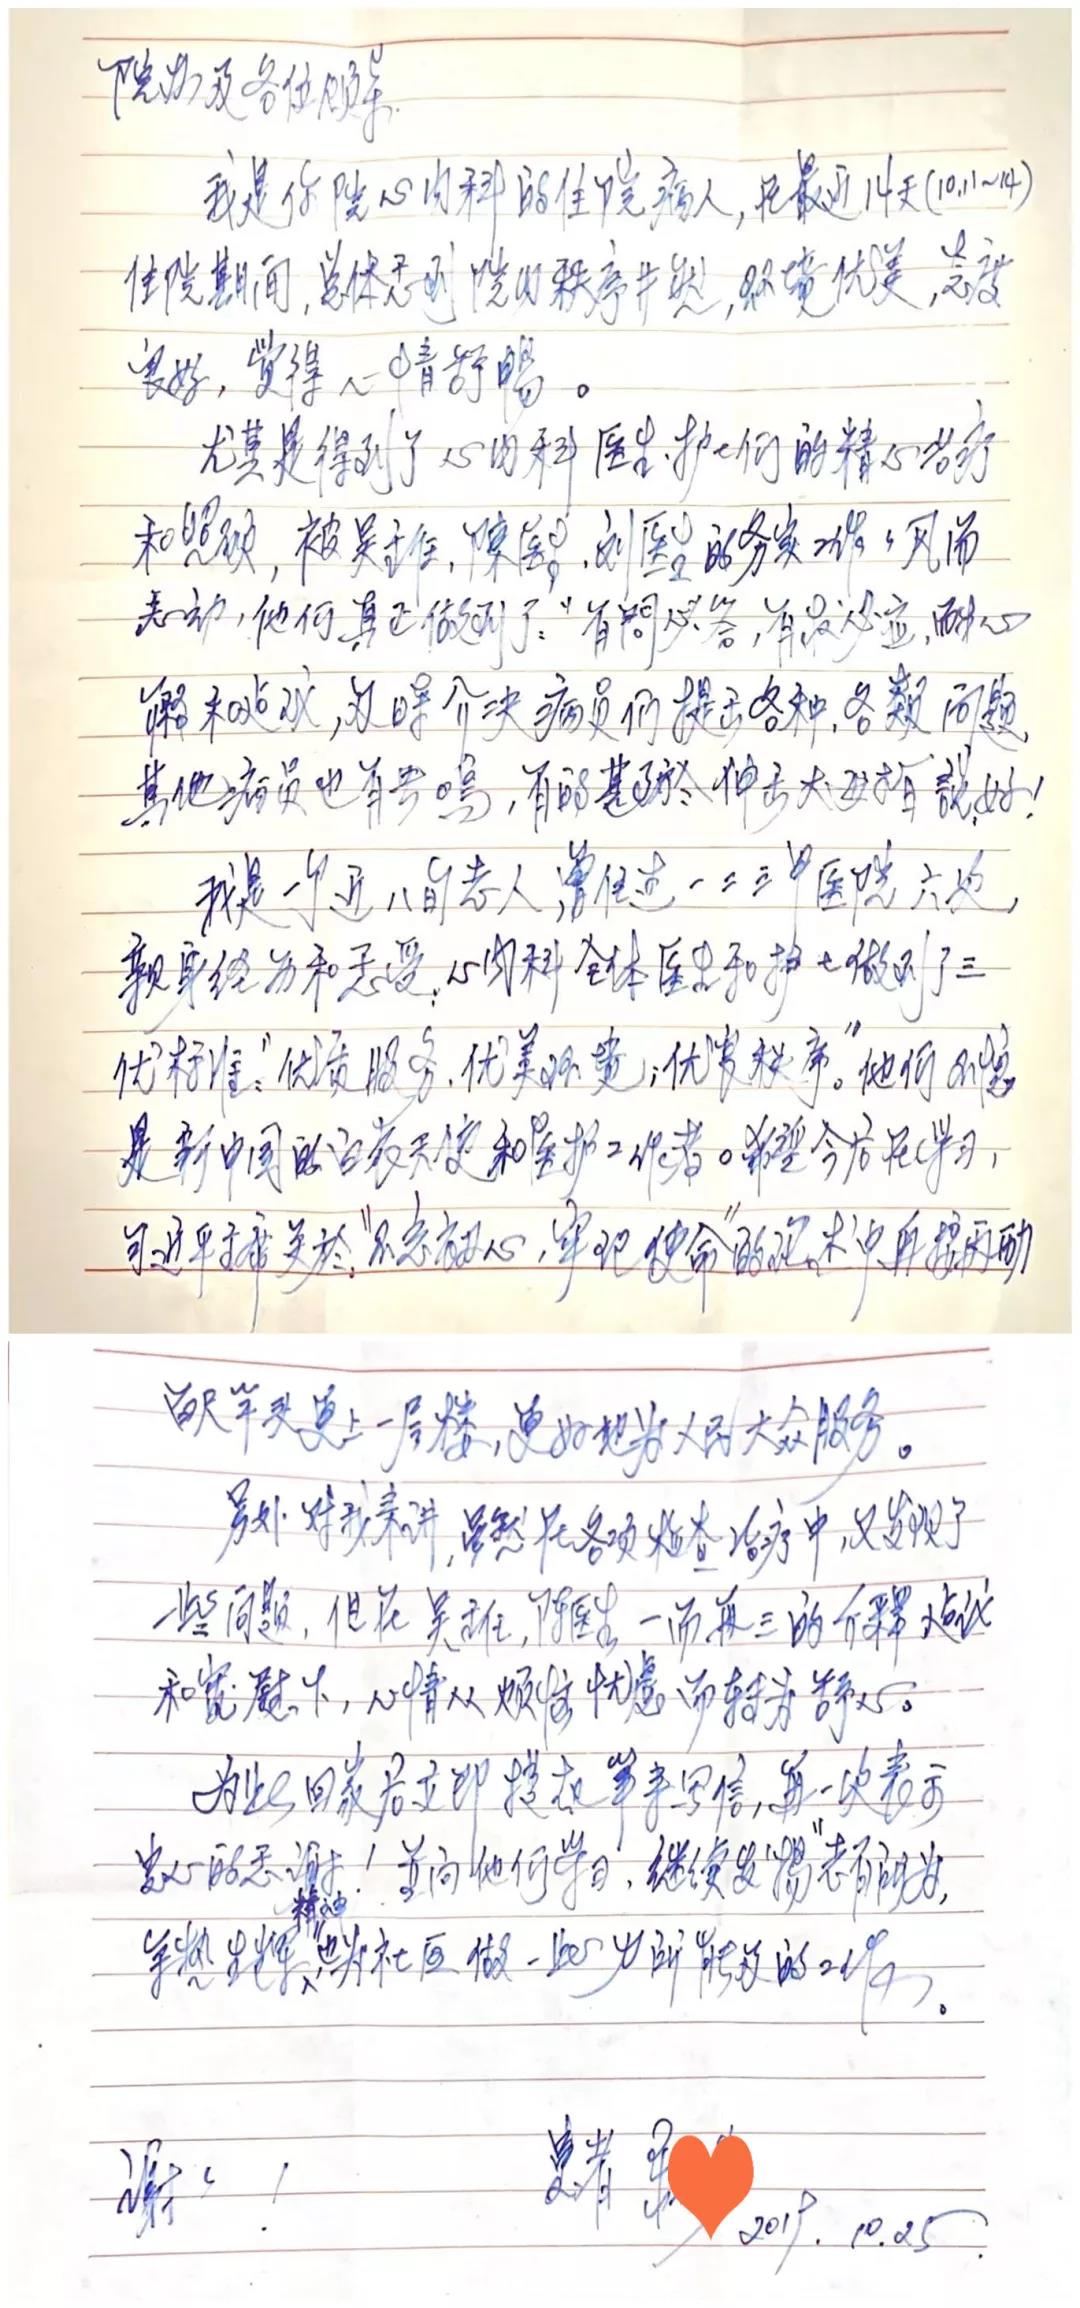 院办及各位领导
我是你院心内科的住院病人，在最近14天(10.11~14)
住院期间，总体感到院内秩序井然，环境优美，态度
良好，觉得心情舒畅。
尤其是得到了心内科医生、护士们的精心治疗
和照顾，被吴主任、陈医生、刘医生的务实工作作风而
感动，他们真正做到了："有问必答，有求必应，耐心
解释，及时解决病员们提出各种、各类问题，
其他病员也有共鸣，有的甚至伸出大拇指說好！
我是一个近八旬老人，曾住过一二三甲医院六次，
親身经历和感受，心内科全体医生和护士做到了三
优标准："优质服务，优美环境，优良秩序。"他们不愧
是新中国的白衣天使和医护工作者。希望今后在学习
习近平主席关於"不忘初心，牢记使命"的中再接再励
百尺竿头更上一层楼，更好地为人民大众服务。
另外对我来讲，虽然在各项检查治疗中，又发现了
一些问题，但在吴主任，陈医生一而再三的介釋
和宽慰下，心情从烦恼忧慮而转为舒心。
为此回家后立即提起笔来写信，再一次表示
衷心的感谢！并向他们学习，继续发揚"老有所为，
精神
"也为社区做一些力所能及的工作。
谢谢！
患者
2019.10.25